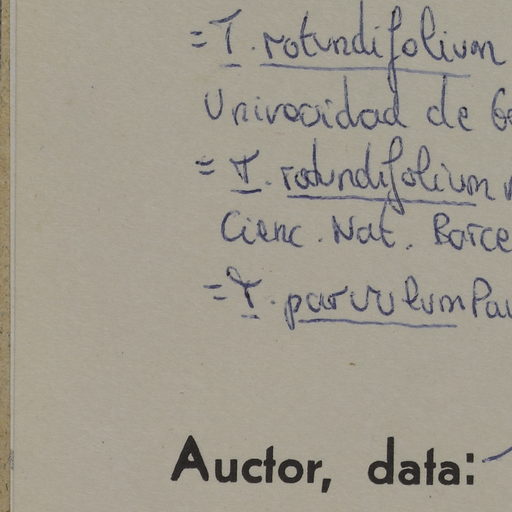 = T. rotundifolium
Univocidad de
= T. rotundifolium
Cienc. Nat. Barce
= T. parvulum Pau
Auctor, data: